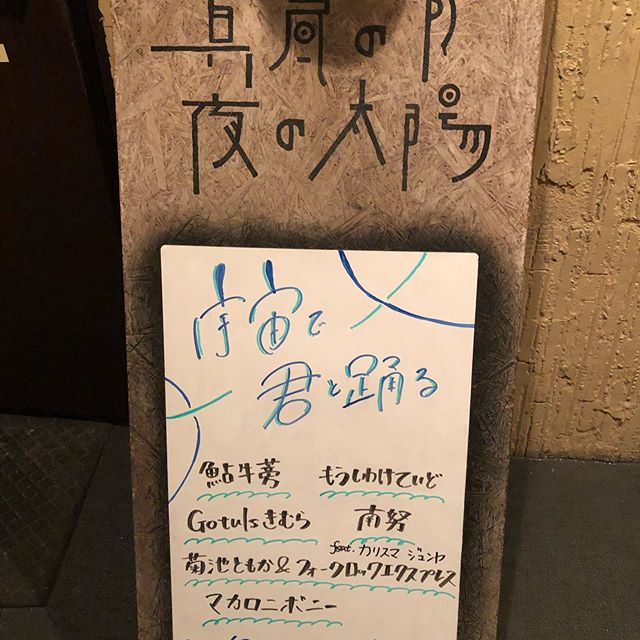 真昼の月
夜の太陽
宇宙で
君と踊る
鮎牛蒡 もうしわけていど
Gotulsきむら 南努
feat. カリスマ ジュンヤ
菊池ともか&フォークロックエクスプレス
マカロニボニー